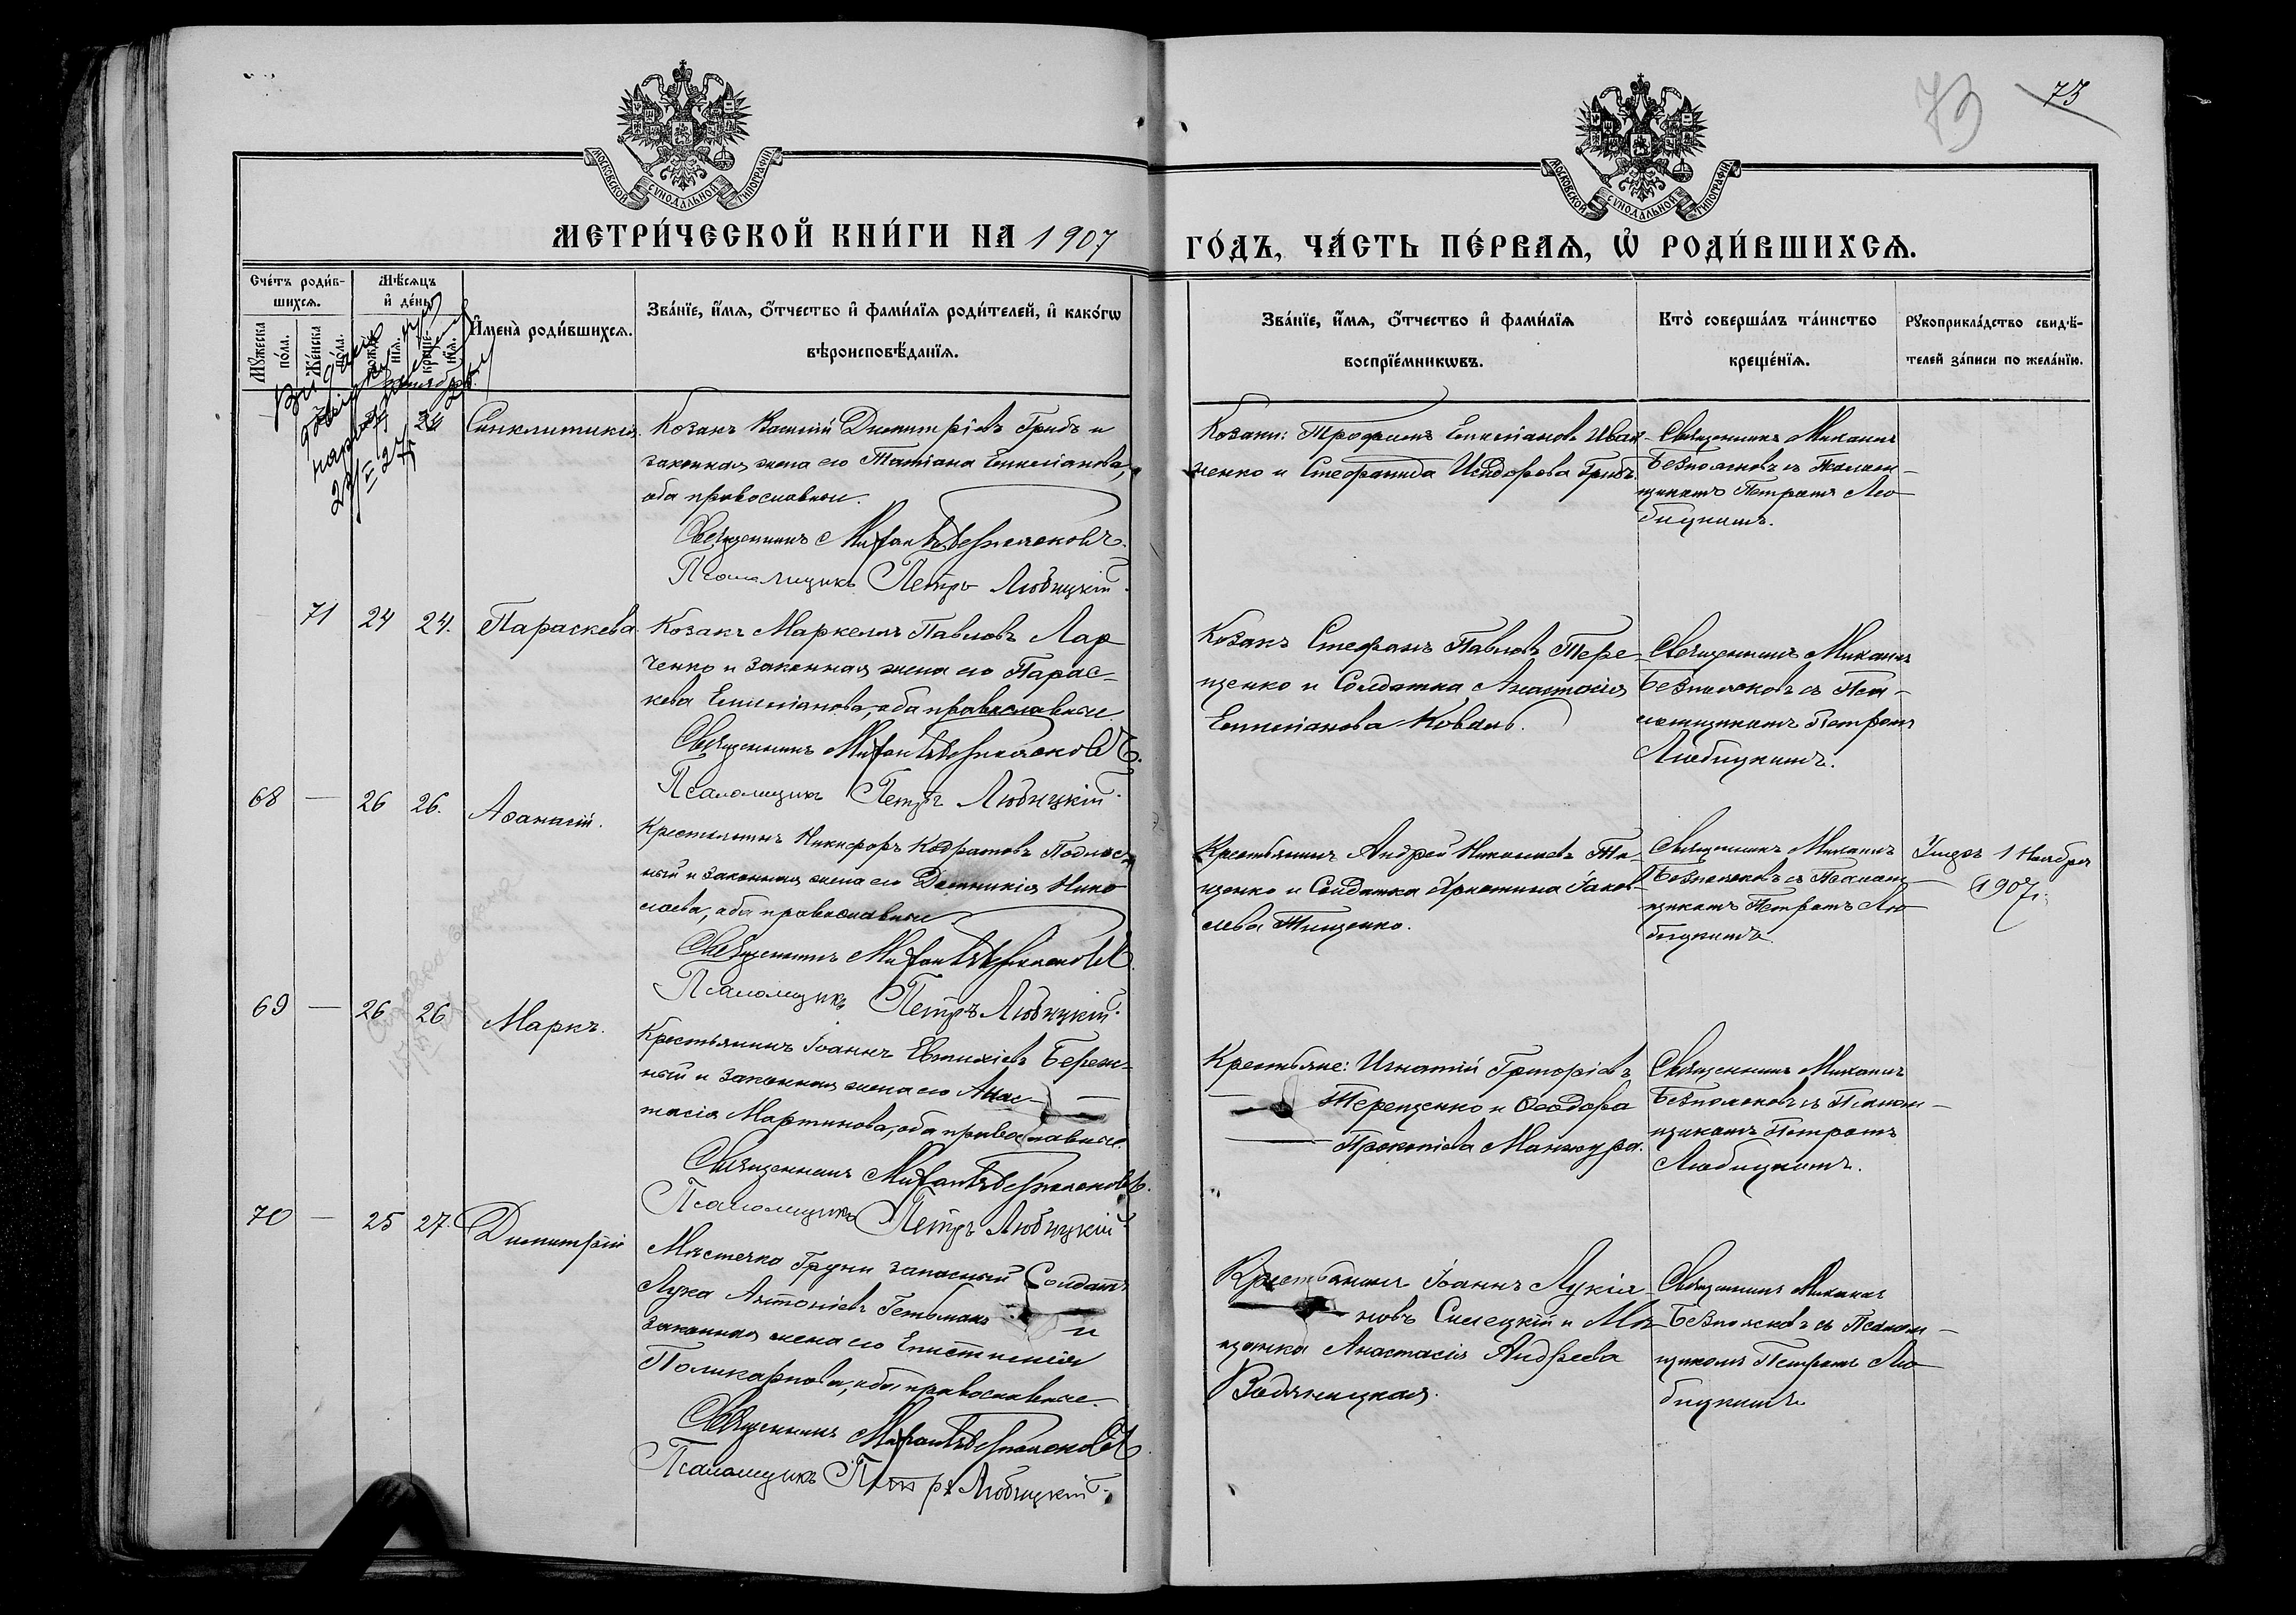 73
73
МОСКОВСКОЙ СУНОДАЛЬНОЙ ТИПОГРАФІИ
МОСКОВСКОЙ СУНОДАЛЬНОЙ ТИПОГРАФІИ
МЕТРИ́ЧЕСКОЙ КНИ́ГИ НА 1907
ГО́ДЪ, ЧА́СТЬ ПЕ́РВАѦ, Ѡ҆ РОДИ́ВШИХСѦ.
Сче́тъ роди́в-
шихсѧ.
Мꙋ́жеска по́ла.
Же́нска по́ла.
Мѣ́сѧцъ
и҆ де́нь
рожде-
нїѧ.
креще-
нїѧ.
И҆мена̀ роди́вшихсѧ.
Зва́нїе, и҆́мѧ, ѻ҆́тчество и҆ фами́лїѧ роди́телей, и҆ како́гѡ
вѣроисповѣ́данїѧ.
Зва́нїе, и҆́мѧ, ѻ҆́тчество и҆ фами́лїѧ
воспрїе́мникѡвъ.
Кто̀ соверша́лъ та́инство
креще́нїѧ.
Рꙋкоприкла́дство свидѣ́-
телей за́писи по жела́нїю.
24
Синклитикія.
Козакъ Василій Димитріевъ Грибъ и
законная жена его Татіана Емиліанова,
оба православные.
Священникъ Михаилъ Безпояsковъ.
Псаломщикъ Петръ Любицкій.
Козаки: Трофимъ Емиліановъ Иван-
ченко и Стефанида Исидорова Грибъ.
Священникъ Михаилъ
Безпоясковъ съ Псалом-
щикомъ Петромъ Лю-
бицкимъ.
71 24 24. Параскева
Козакъ Маркеллъ Павловъ Лар-
ченко и законная жена его Парас-
кева Емиліанова, оба православные.
Священникъ Михаилъ Безпоясковъ.
Псаломщикъ Петръ Любицкій.
Козакъ Стефанъ Павловъ Тере-
щенко и Солдатка Анастасія
Емиліанова Коваль.
Священникъ Михаилъ
Безпоясковъ съ Пса-
ломщикомъ Петромъ
Любицкимъ.
68 — 26 26. Аѳанасій.
Крестьянинъ Никифоръ Кодратовъ
и законная жена его Домникія Нико-
лаева, оба православные
Священникъ Михаилъ Безпоясковъ.
Псаломщикъ Петръ Любицкій.
Крестьянинъ Андрей Николаевъ Ти-
щенко и Солдатка Христина Іаков-
лева Тищенко.
Священникъ Михаилъ
Безпоясковъ съ Псалом-
щикомъ Петромъ Лю-
бицкимъ.
Умеръ 1 Ноября
1907 г.
69 — 26 26 Маркъ.
Крестьянинъ Іоаннъ Евтихіевъ Береж-
ный и законная жена его Анас-
тасія Мартинова, оба православные.
Священникъ Михаилъ Безпоясковъ.
Псаломщикъ Петръ Любицкій.
Крестьяне: Игнатій Григоріевъ
Терещенко и Ѳеодора
Прокопіева Манжура.
Священникъ Михаилъ
Безпоясковъ съ Псалом-
щикомъ Петромъ
Любицкимъ.
70 — 25 27. Димитрій
Мѣстечка Груни запасный Солдатъ
Лука Антоніевъ Гетьманъ и
законная жена его Епистимія
Поликарпова, оба православные.
Священникъ Михаилъ Безпоясковъ
Псаломщикъ Петръ Любицкій.
Крестьянинъ Іоаннъ Лукіа-
новъ Силецкій и Мѣ-
щанка Анастасія Андреева
Водяницкая.
Священникъ Михаилъ
Безпоясковъ съ Псалом-
щикомъ Петромъ Лю-
бицкимъ